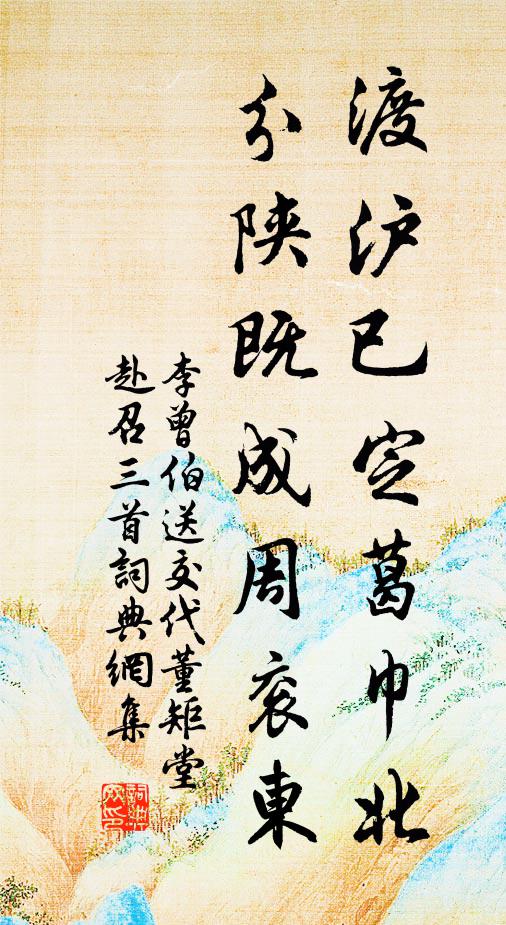 渡泸已定葛巾北
分陕既成周衮東
李曾伯送交代董矩堂
赴召三首詞典網集